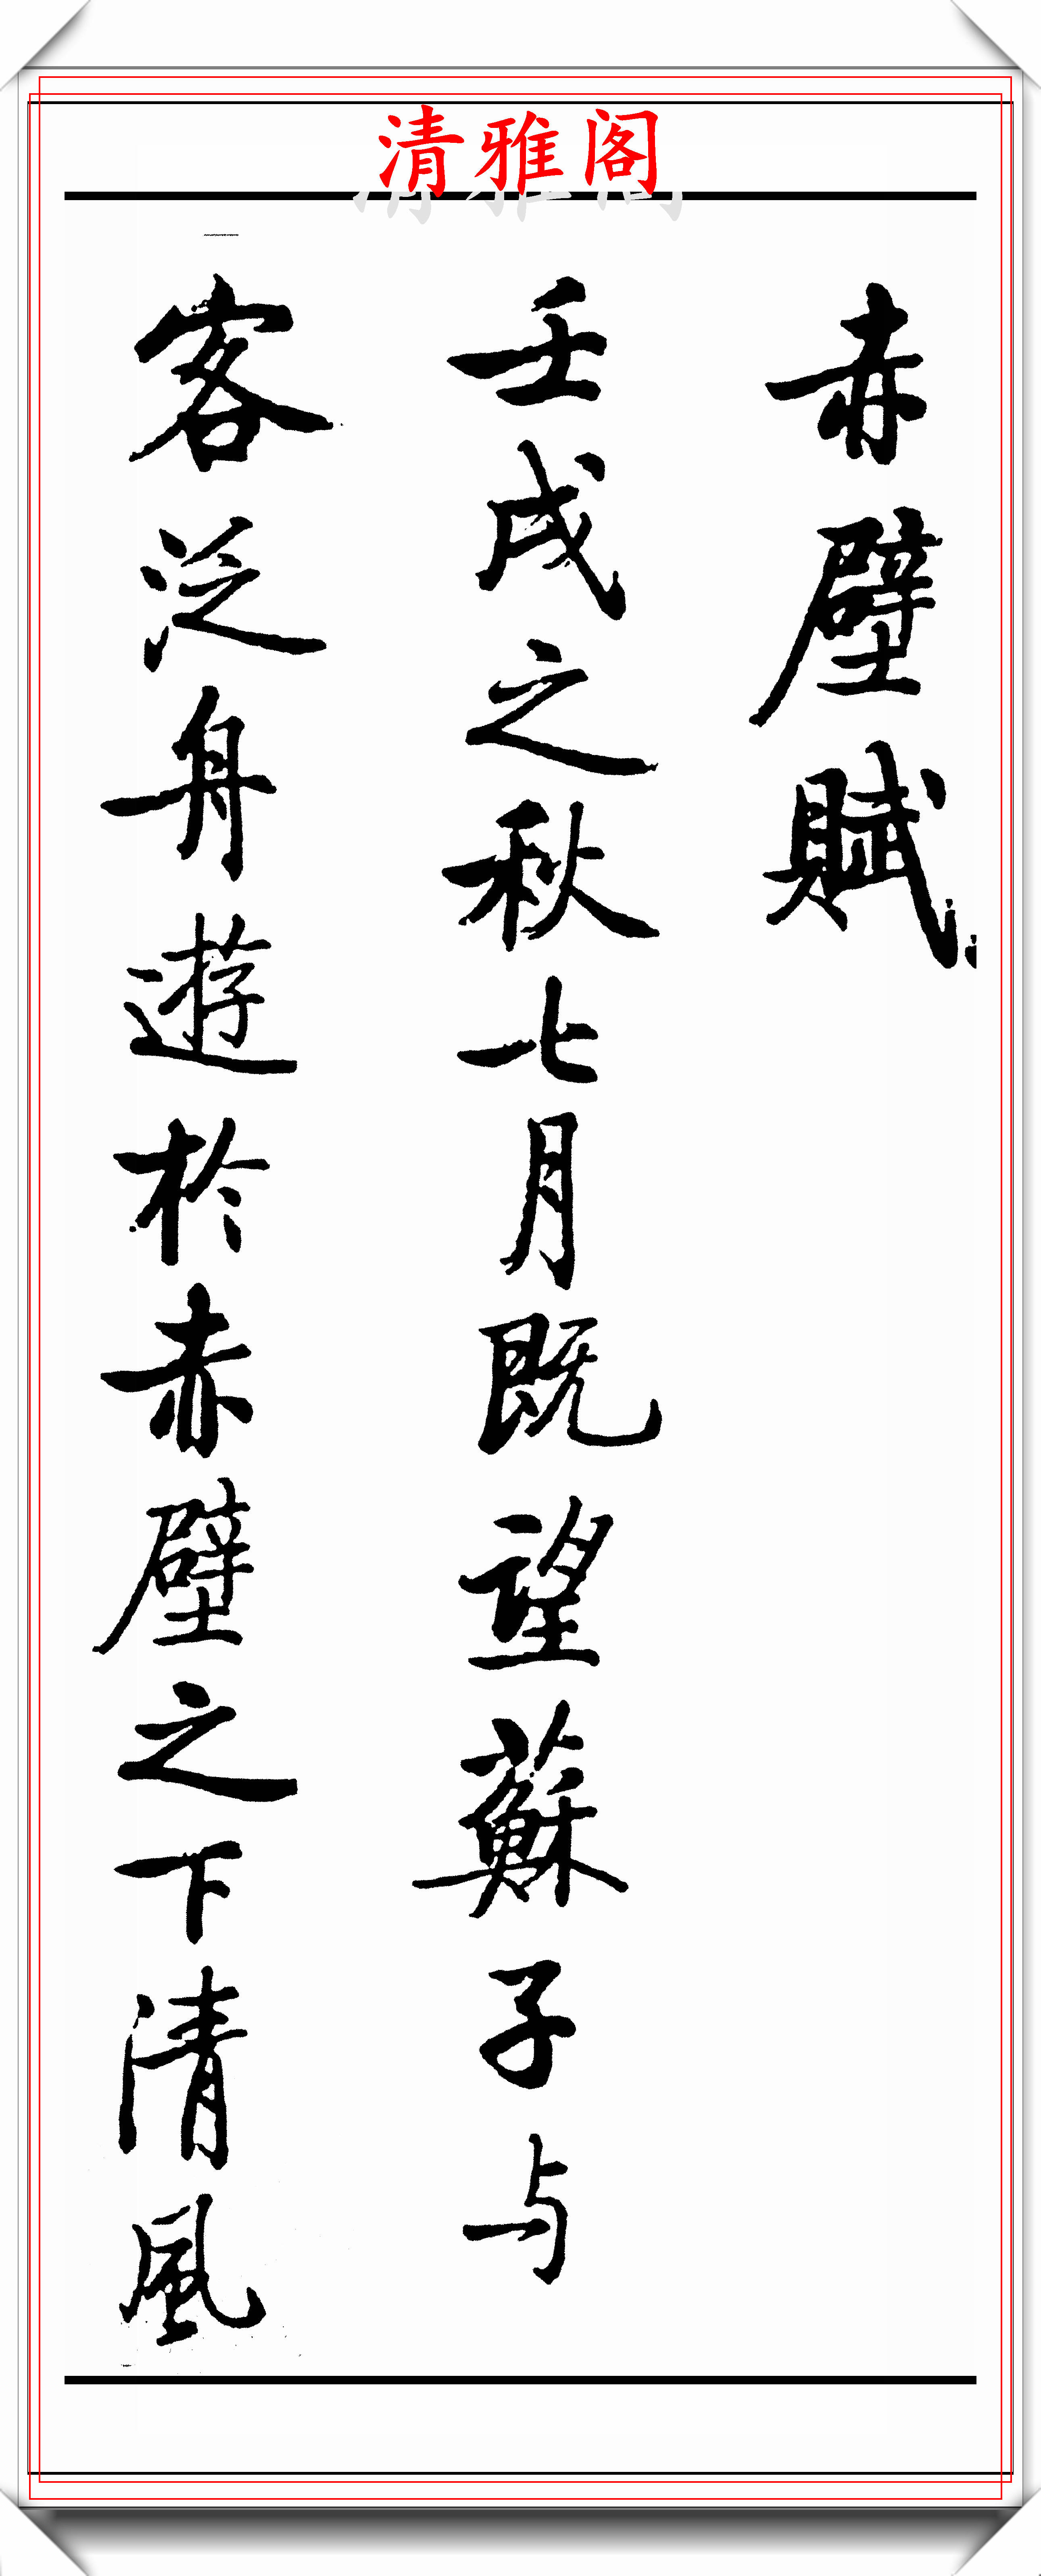 清雅阁
赤壁賦
壬戌之秋七月既望蘇子与
客泛舟遊於赤壁之下清風